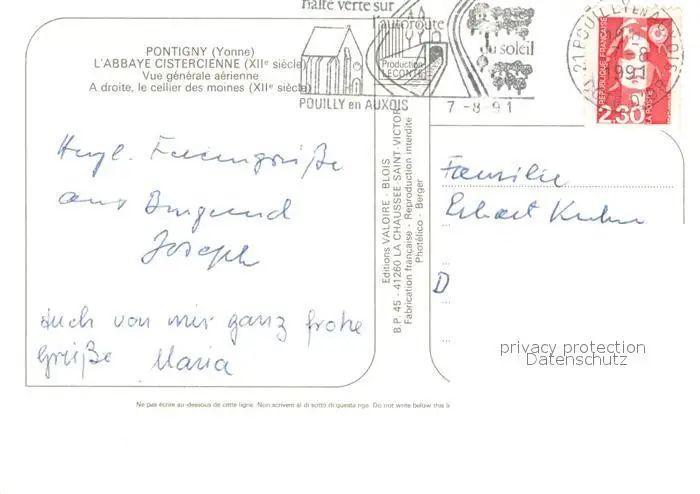 halte verte sur
l'autoroute
du soleil
Production
LECONTE
POUILLY en AUXOIS
7-8-91
21 POUILLY EN AUXOIS
7-8
1991
RÉPUBLIQUE FRANÇAISE
LA POSTE
2,30
PONTIGNY (Yonne)
L'ABBAYE CISTERCIENNE (XIIe siècle)
Vue générale aérienne
A droite, le cellier des moines (XIIe siècle)
Herzl. Feriengrüße
aus Burgund
Joseph
Auch von mir ganz frohe
Grüße Maria
Editions VALOIRE - BLOIS
B.P. 45 - 41260 LA CHAUSSÉE-SAINT-VICTOR
Fabrication française - Reproduction interdite
Photélico - Berger
Familie
Erhart Kuhn
D
privacy protection
Datenschutz
Ne pas écrire au-dessous de cette ligne. Non scrivere al di sotto di questa riga. Do not write below this